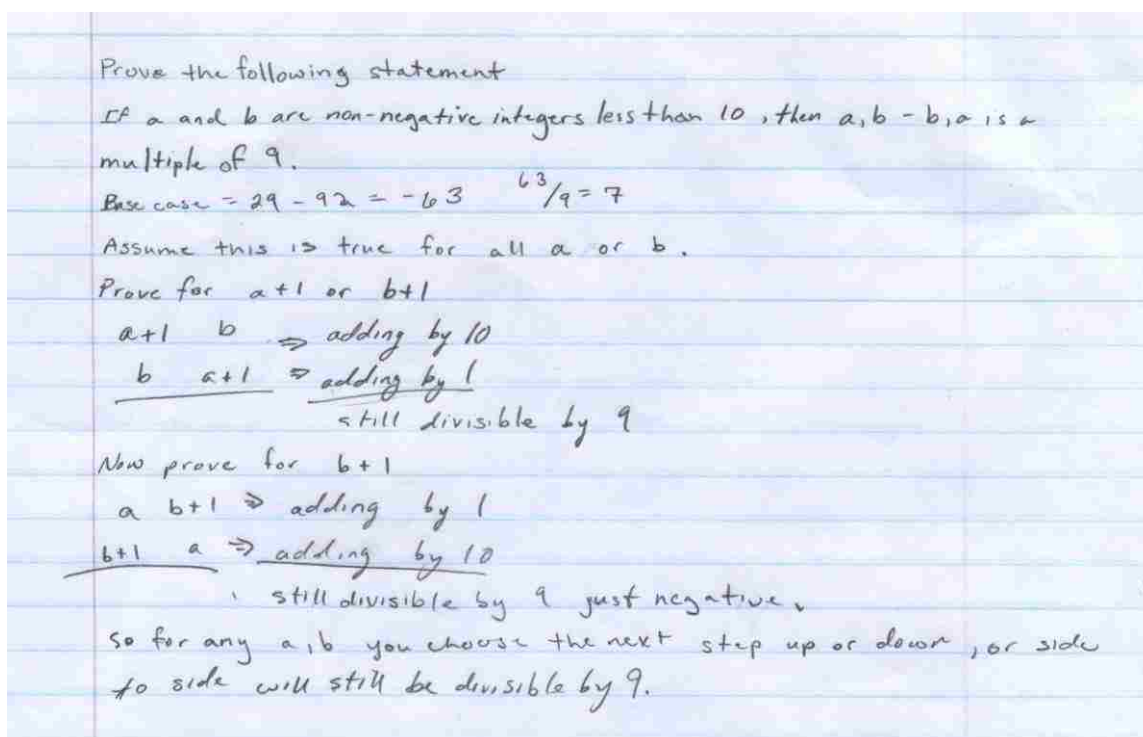 Prove the following statement
If a and b are non-negative integers less than 10, then a,b - b,a is a
multiple of 9.
Base case = 29 - 92 = -63 63/9 = 7
Assume this is true for all a or b.
Prove for a+1 or b+1
a+1 b ⇒ adding by 10
b a+1 ⇒ adding by 1
still divisible by 9
Now prove for b+1
a b+1 ⇒ adding by 1
b+1 a ⇒ adding by 10
still divisible by 9 just negative.
So for any a,b you choose the next step up or down, or side
to side will still be divisible by 9.